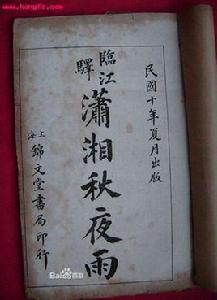 民國十年夏月出版
臨江驛
瀟湘秋夜雨
上海錦文堂書局印行
Bai百科